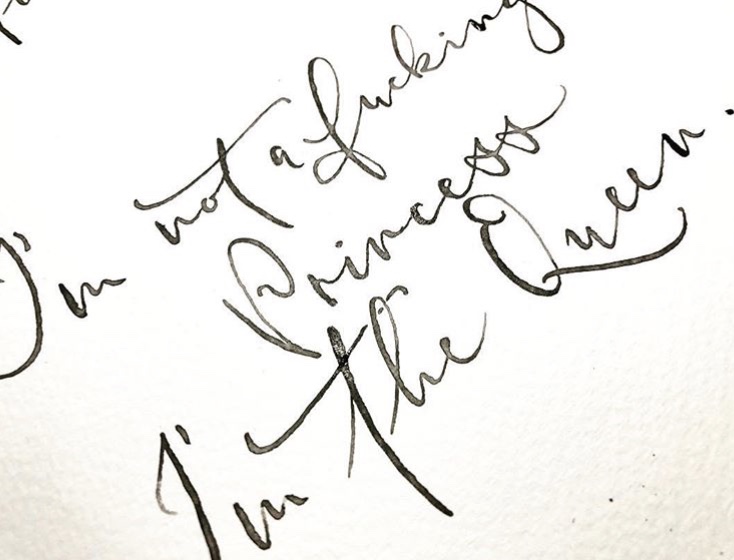 I'm not a fucking
Princess
I'm the Queen.